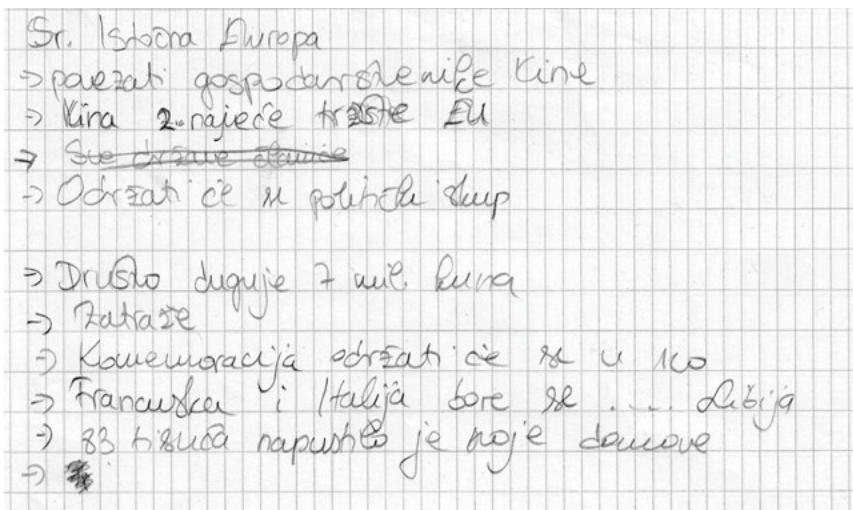 Sr. Istočna Europa
→ povezati gospodarstvenike Kine
→ Kina 2. najveće tržište EU
→ Sve države članice
→ Održati će se politički skup
→ Društvo duguje 7 mil. kuna
→ Zatraže
→ Komemoracija održati će se u 100
→ Francuska i Italija bore se .... Libija
→ 83 tisuća napustilo je svoje domove
→